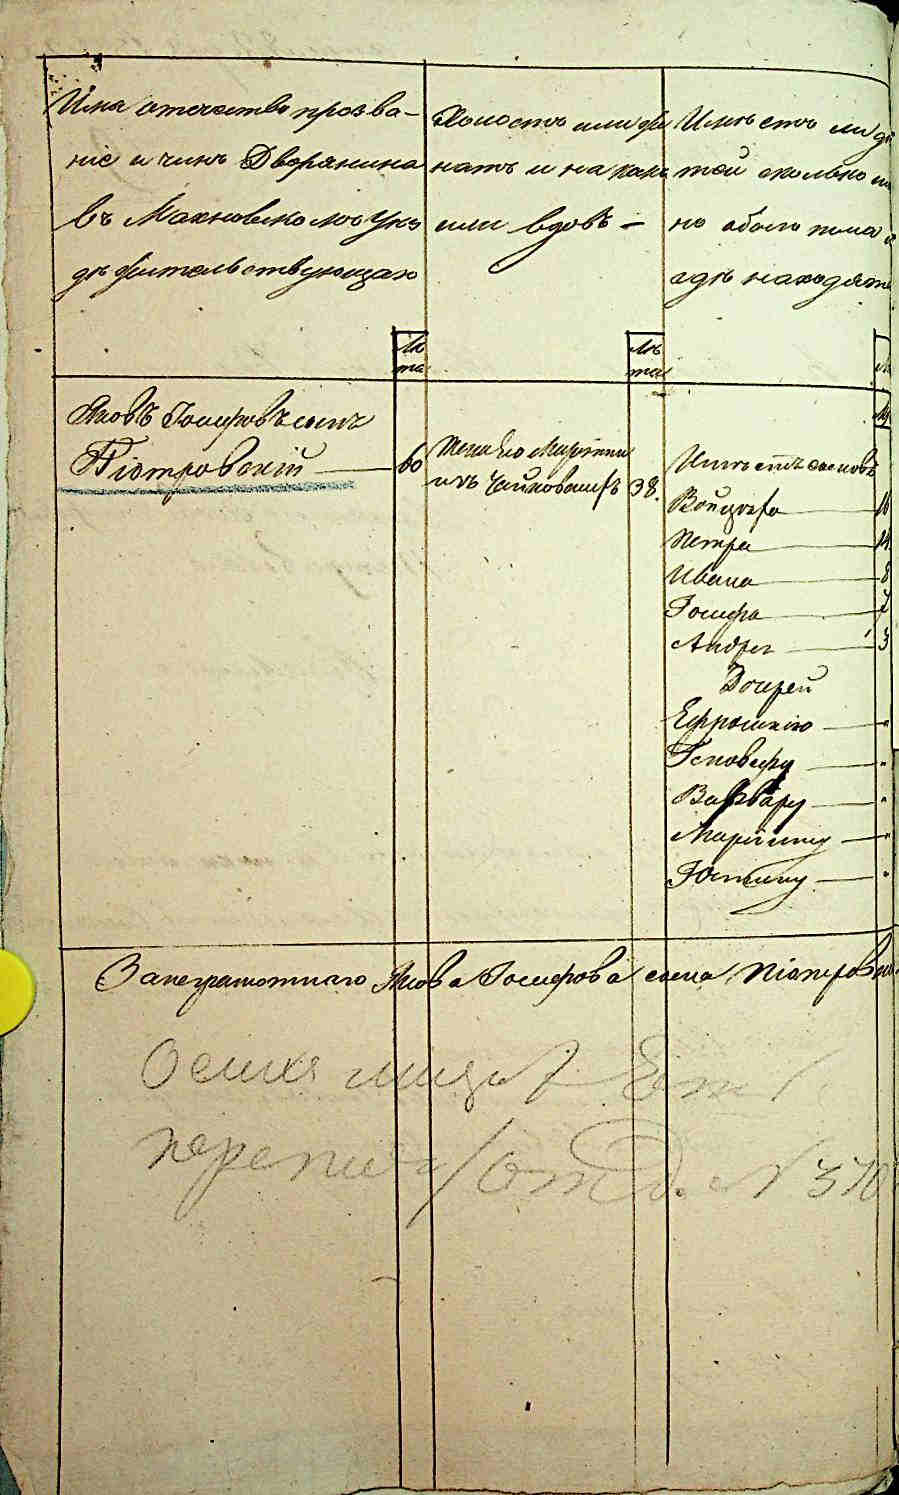 Имя отечество прозва-
ніе и чинъ Дворянина
въ Махновскомъ Уѣз
дѣ жительствующаго
Лѣ
та
Холостъ или же
натъ и на комъ
или вдовъ -
Лѣ
та
Имѣетъ ли дѣ
тей сколько
но обоего пола и
гдѣ находятся
Яковъ Іосифовъ сынъ
Піотровскій 60
Жена Его Маріанна
изъ Чайковскихъ 38.
Имѣетъ сыновъ
Войцеха 16
Петра 14
Ивана 8
Іосифа 7
Андрея 3
Дочерей
Ефросинію "
Геновефу "
Варвару "
Маріанну "
Юстину "
За неграмотнаго Якова Іосифова сына Піотровск
Отд. N 370